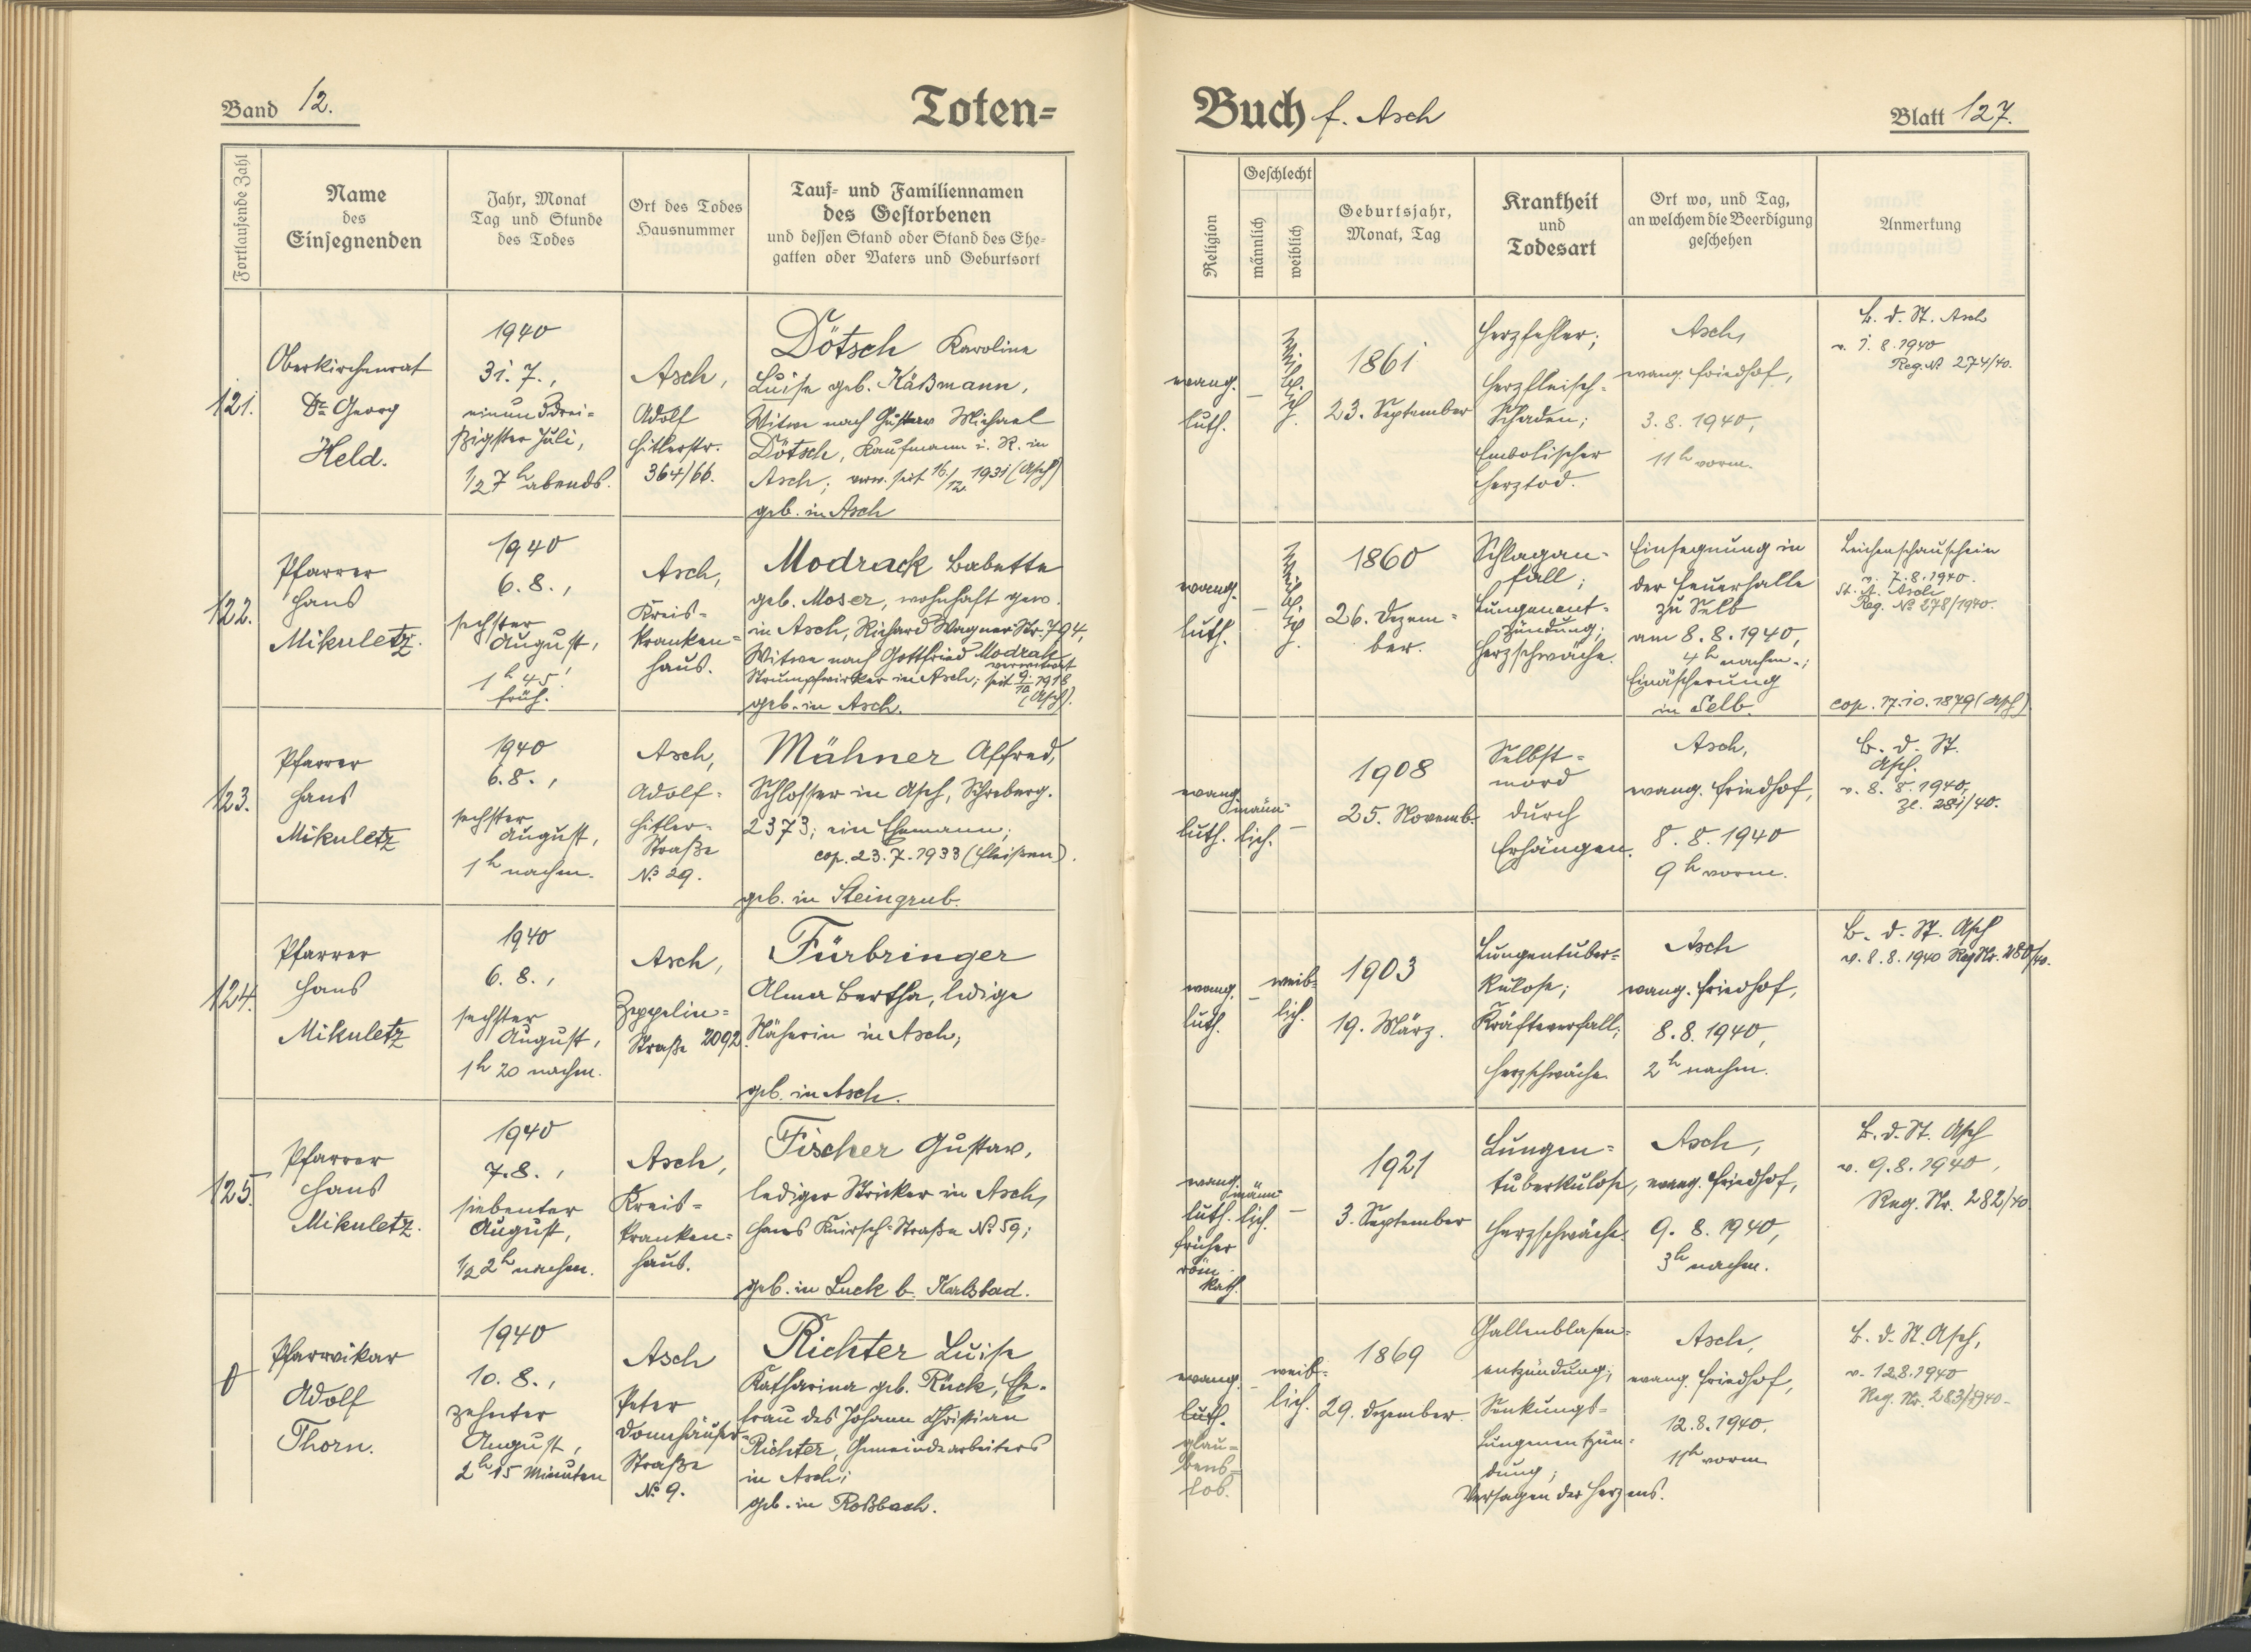 Band 12.
Toten=
Buch f. Asch
Blatt 127.
Fortlaufende Zahl
Name
des
Einsegnenden
Jahr, Monat
Tag und Stunde
des Todes
Ort des Todes
Hausnummer
Tauf= und Familiennamen
des Gestorbenen
und dessen Stand oder Stand des Ehe=
gatten oder Vaters und Geburtsort
Religion
Geschlecht
männlich
weiblich
Geburtsjahr,
Monat, Tag
Krankheit
und
Todesart
Ort wo, und Tag,
an welchem die Beerdigung
geschehen
Anmerkung
121.
Oberkirchenrat
Dr. Georg
Held.
1940
31. 7.,
einunddrei=
ßigster Juli,
1/2 7 h abends.
Asch,
Adolf
Hitlerstr.
364/66.
Dötsch Karoline
Luise geb. Käßmann,
Witwe nach Gustav Michael
Dötsch, Kaufmann i. R. in
Asch; verw. seit 16./12. 1931 (Asch)
geb. in Asch
evang.
luth.
–
weiblich.
1861
23. September
Herzfehler;
Herzfleisch=
Schaden;
Embolischer
Herztod.
Asch,
evang. Friedhof,
3. 8. 1940,
11 h vorm.
B. d. St. Asch
v. 1. 8. 1940
Reg. No 274/40.
122.
Pfarrer
Hans
Mikuletz.
1940
6. 8.,
sechster
August,
1 h 45'
früh.
Asch,
Kreis=
kranken=
haus.
Modrack Babette
geb. Moser, wohnhaft gew.
in Asch, Richard Wagner Str. 794,
Witwe nach Gottfried Modrak
Strumpfwirker in Asch; verwitwet seit 9./10. 1918
geb. in Asch. (Asch).
evang.
luth.
–
weiblich.
1860
26. Dezem=
ber.
Schlagan=
fall;
Lungenent=
zündung;
Herzschwäche.
Einsegnung in
der Feuerhalle
zu Selb
am 8. 8. 1940,
4 h nachm.;
Einäscherung
in Selb.
Leichenschauschein
v. 7. 8. 1940.
St. A. Asch
Reg. No 278/1940.
cop. 17. 10. 1879 (Asch)
123.
Pfarrer
Hans
Mikuletz
1940
6. 8.,
sechster
August,
1 h nachm.
Asch,
Adolf=
Hitler=
Straße
No 29.
Mähner Alfred,
Schlosser in Asch, Schreberg.
2373; ein Ehemann;
cop. 23. 7. 1933 (Fleißen).
geb. in Steingrub.
evang.
luth.
männ=
lich.
–
1908
25. Novemb.
Selbst=
mord
durch
Erhängen.
Asch,
evang. Friedhof,
8. 8. 1940
9 h vorm.
B. d. St.
Asch.
v. 8. 8. 1940,
Zl. 281/40.
124.
Pfarrer
Hans
Mikuletz
1940
6. 8.,
sechster
August,
1 h 20 nachm.
Asch,
Zeppelin=
Straße 2092.
Fürbringer
Alma Bertha, ledige
Näherin in Asch;
geb. in Asch.
evang.
luth.
–
weib=
lich.
1903
19. März.
Lungentuber=
kulose;
Kräfteverfall;
Herzschwäche
Asch
evang. Friedhof,
8. 8. 1940,
2 h nachm.
B. d. St. Asch
v. 8. 8. 1940 Reg Nr. 280/40.
125.
Pfarrer
Hans
Mikuletz.
1940
7. 8.,
siebenter
August,
1/2 2 h nachm.
Asch,
Kreis=
kranken=
haus.
Fischer Gustav,
lediger Stricker in Asch,
Hans Knirsch=Straße No 59;
geb. in Luck b. Karlsbad.
evang.
luth.
früher
röm.
kath.
männ=
lich.
–
1921
3. September
Lungen=
tuberkulose,
Herzschwäche.
Asch,
evang. Friedhof,
9. 8. 1940,
3 h nachm.
B. d. St. Asch
v. 9. 8. 1940,
Reg. Nr. 282/40.
0
Pfarrvikar
Adolf
Thorn.
1940
10. 8.,
zehnter
August,
2 h 15 Minuten
Asch
Peter
Donnhäuser=
Straße
No 9.
Richter Luise
Katharina geb. Rück, Ehe=
frau des Johann Christian
Richter, Gemeindearbeiters
in Asch;
geb. in Roßbach.
evang.
luth.
glau=
bens=
los.
–
weib=
lich.
1869
29. Dezember.
Gallenblasen=
entzündung;
Senkungs=
Lungenentzün=
dung;
Versagen des Herzens.
Asch,
evang. Friedhof,
12. 8. 1940.
11 h vorm
B. d. St. Asch,
v. 12.8.1940
Reg. Nr. 283/1940.